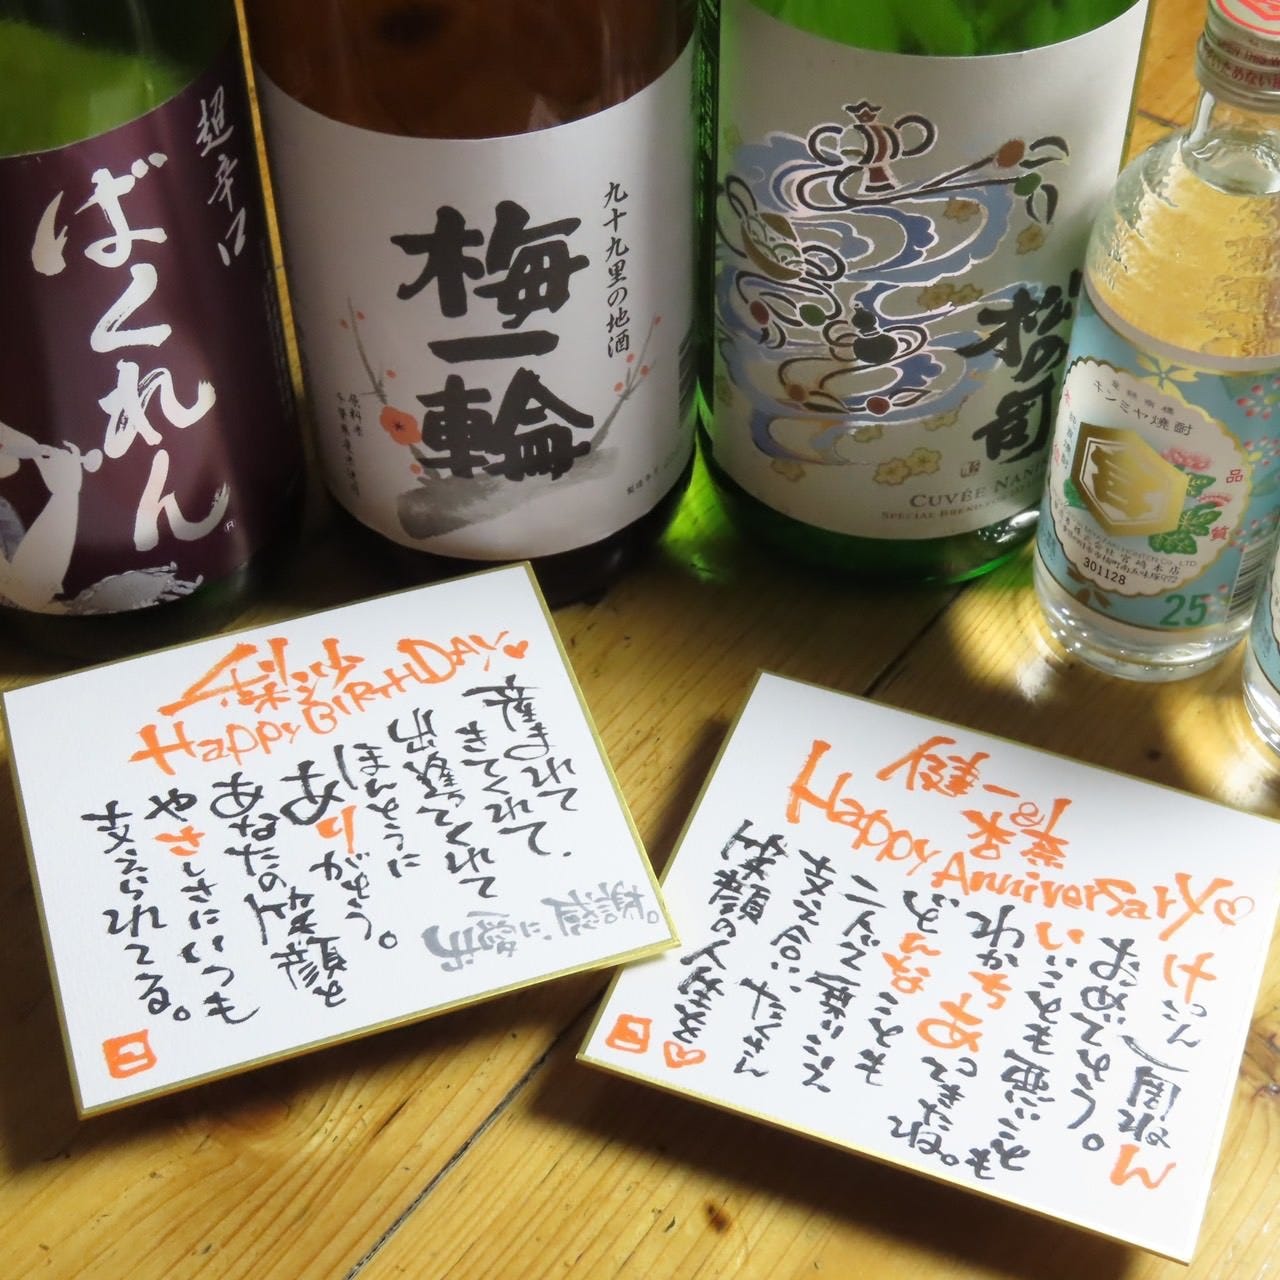 超辛口
ばくれん
九十九里の地酒
梅一輪
松の司
CUVÉE
キンミヤ焼酎
品
質
株式会社宮崎本店
301128
25
Happy BIRTHDAY
産まれて
きてくれて、
出逢ってくれて
ほんとうに
ありがとう。
あなたの笑顔と
やさしさにいつも
支えられてる。
Happy Anniversary
けっこん一周ねん
おめでとう。
いいことも悪いことも
わかちあって
二人で
支え合い
たくさん
笑顔の人生を